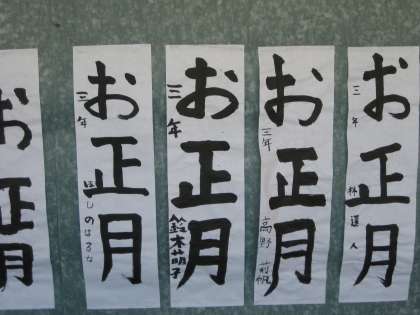 お正月
お正月
三年
ほしのはるな
お正月
三年
鈴木萌子
お正月
三年
高野
お正月
三年
林 選人